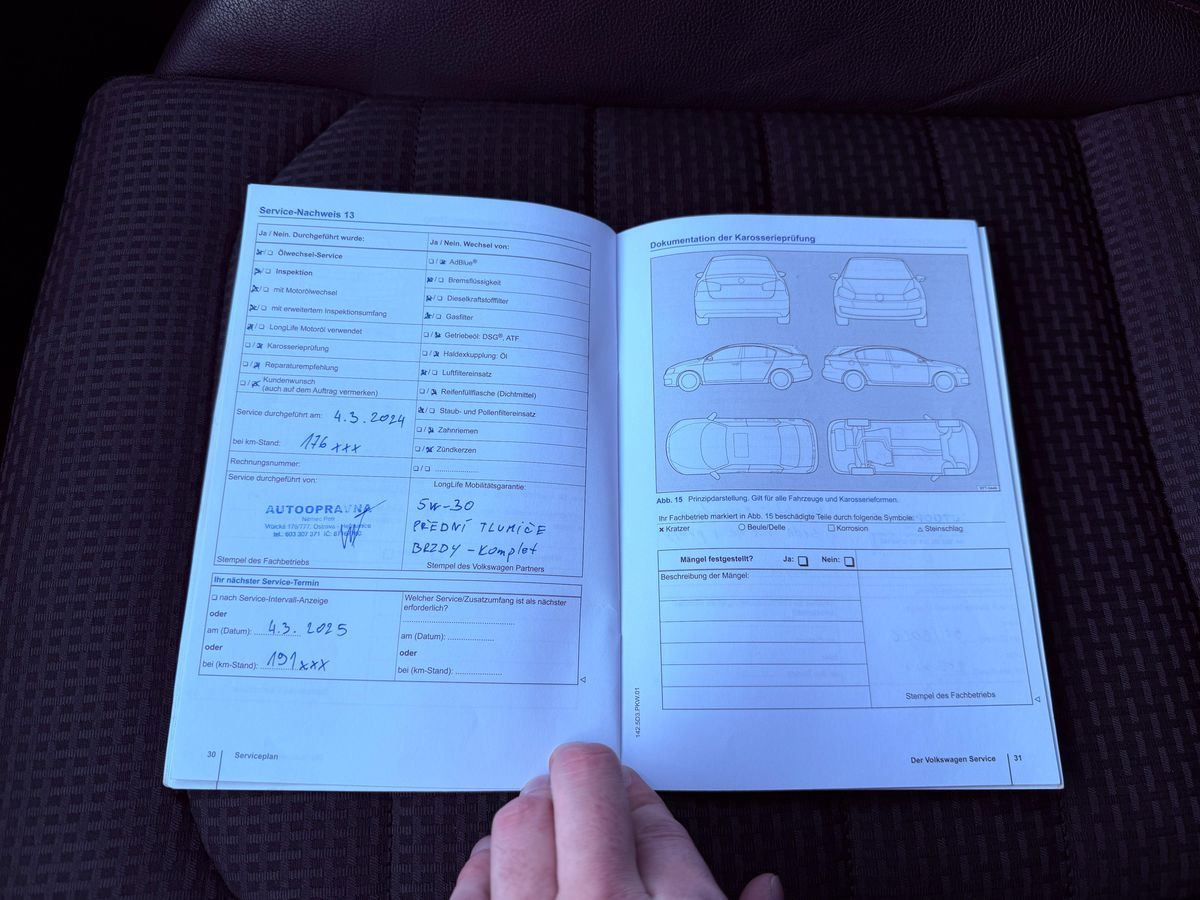 Service-Nachweis 13
Ja / Nein. Durchgeführt wurde:
Ölwechsel-Service
Inspektion
mit Motorölwechsel
mit erweitertem Inspektionsumfang
LongLife Motoröl verwendet
Karosserieprüfung
Reparaturempfehlung
Kundenwunsch
(auch auf dem Auftrag vermerken)
Service durchgeführt am: 4.3.2024
bei km-Stand: 176xxx
Rechnungsnummer:
Service durchgeführt von:
AUTOOPRAVNA
Vrůcká 176/777, Ostrava
tel. 603 307 371 IČ:
Stempel des Fachbetriebs
Ja / Nein. Wechsel von:
AdBlue®
Bremsflüssigkeit
Dieselkraftstofffilter
Gasfilter
Getriebeöl: DSG®, ATF
Haldexkupplung: Öl
Luftfiltereinsatz
Reifenfüllflasche (Dichtmittel)
Staub- und Pollenfiltereinsatz
Zahnriemen
Zündkerzen
LongLife Mobilitätsgarantie:
5W-30
PŘEDNÍ TLUMIČE
BRZDY - Komplet
Stempel des Volkswagen Partners
Ihr nächster Service-Termin
nach Service-Intervall-Anzeige
oder
am (Datum): 4.3. 2025
oder
bei (km-Stand): 191xxx
Welcher Service/Zusatzumfang ist als nächster
erforderlich?
am (Datum):
oder
bei (km-Stand):
30 Serviceplan
Dokumentation der Karosserieprüfung
Abb. 15 Prinzipdarstellung. Gilt für alle Fahrzeuge und Karosserieformen.
Ihr Fachbetrieb markiert in Abb. 15 beschädigte Teile durch folgende Symbole:
Kratzer Beule/Delle Korrosion Steinschlag
Mängel festgestellt? Ja: Nein:
Beschreibung der Mängel:
Stempel des Fachbetriebs
142.5D3.PKW.01
Der Volkswagen Service 31